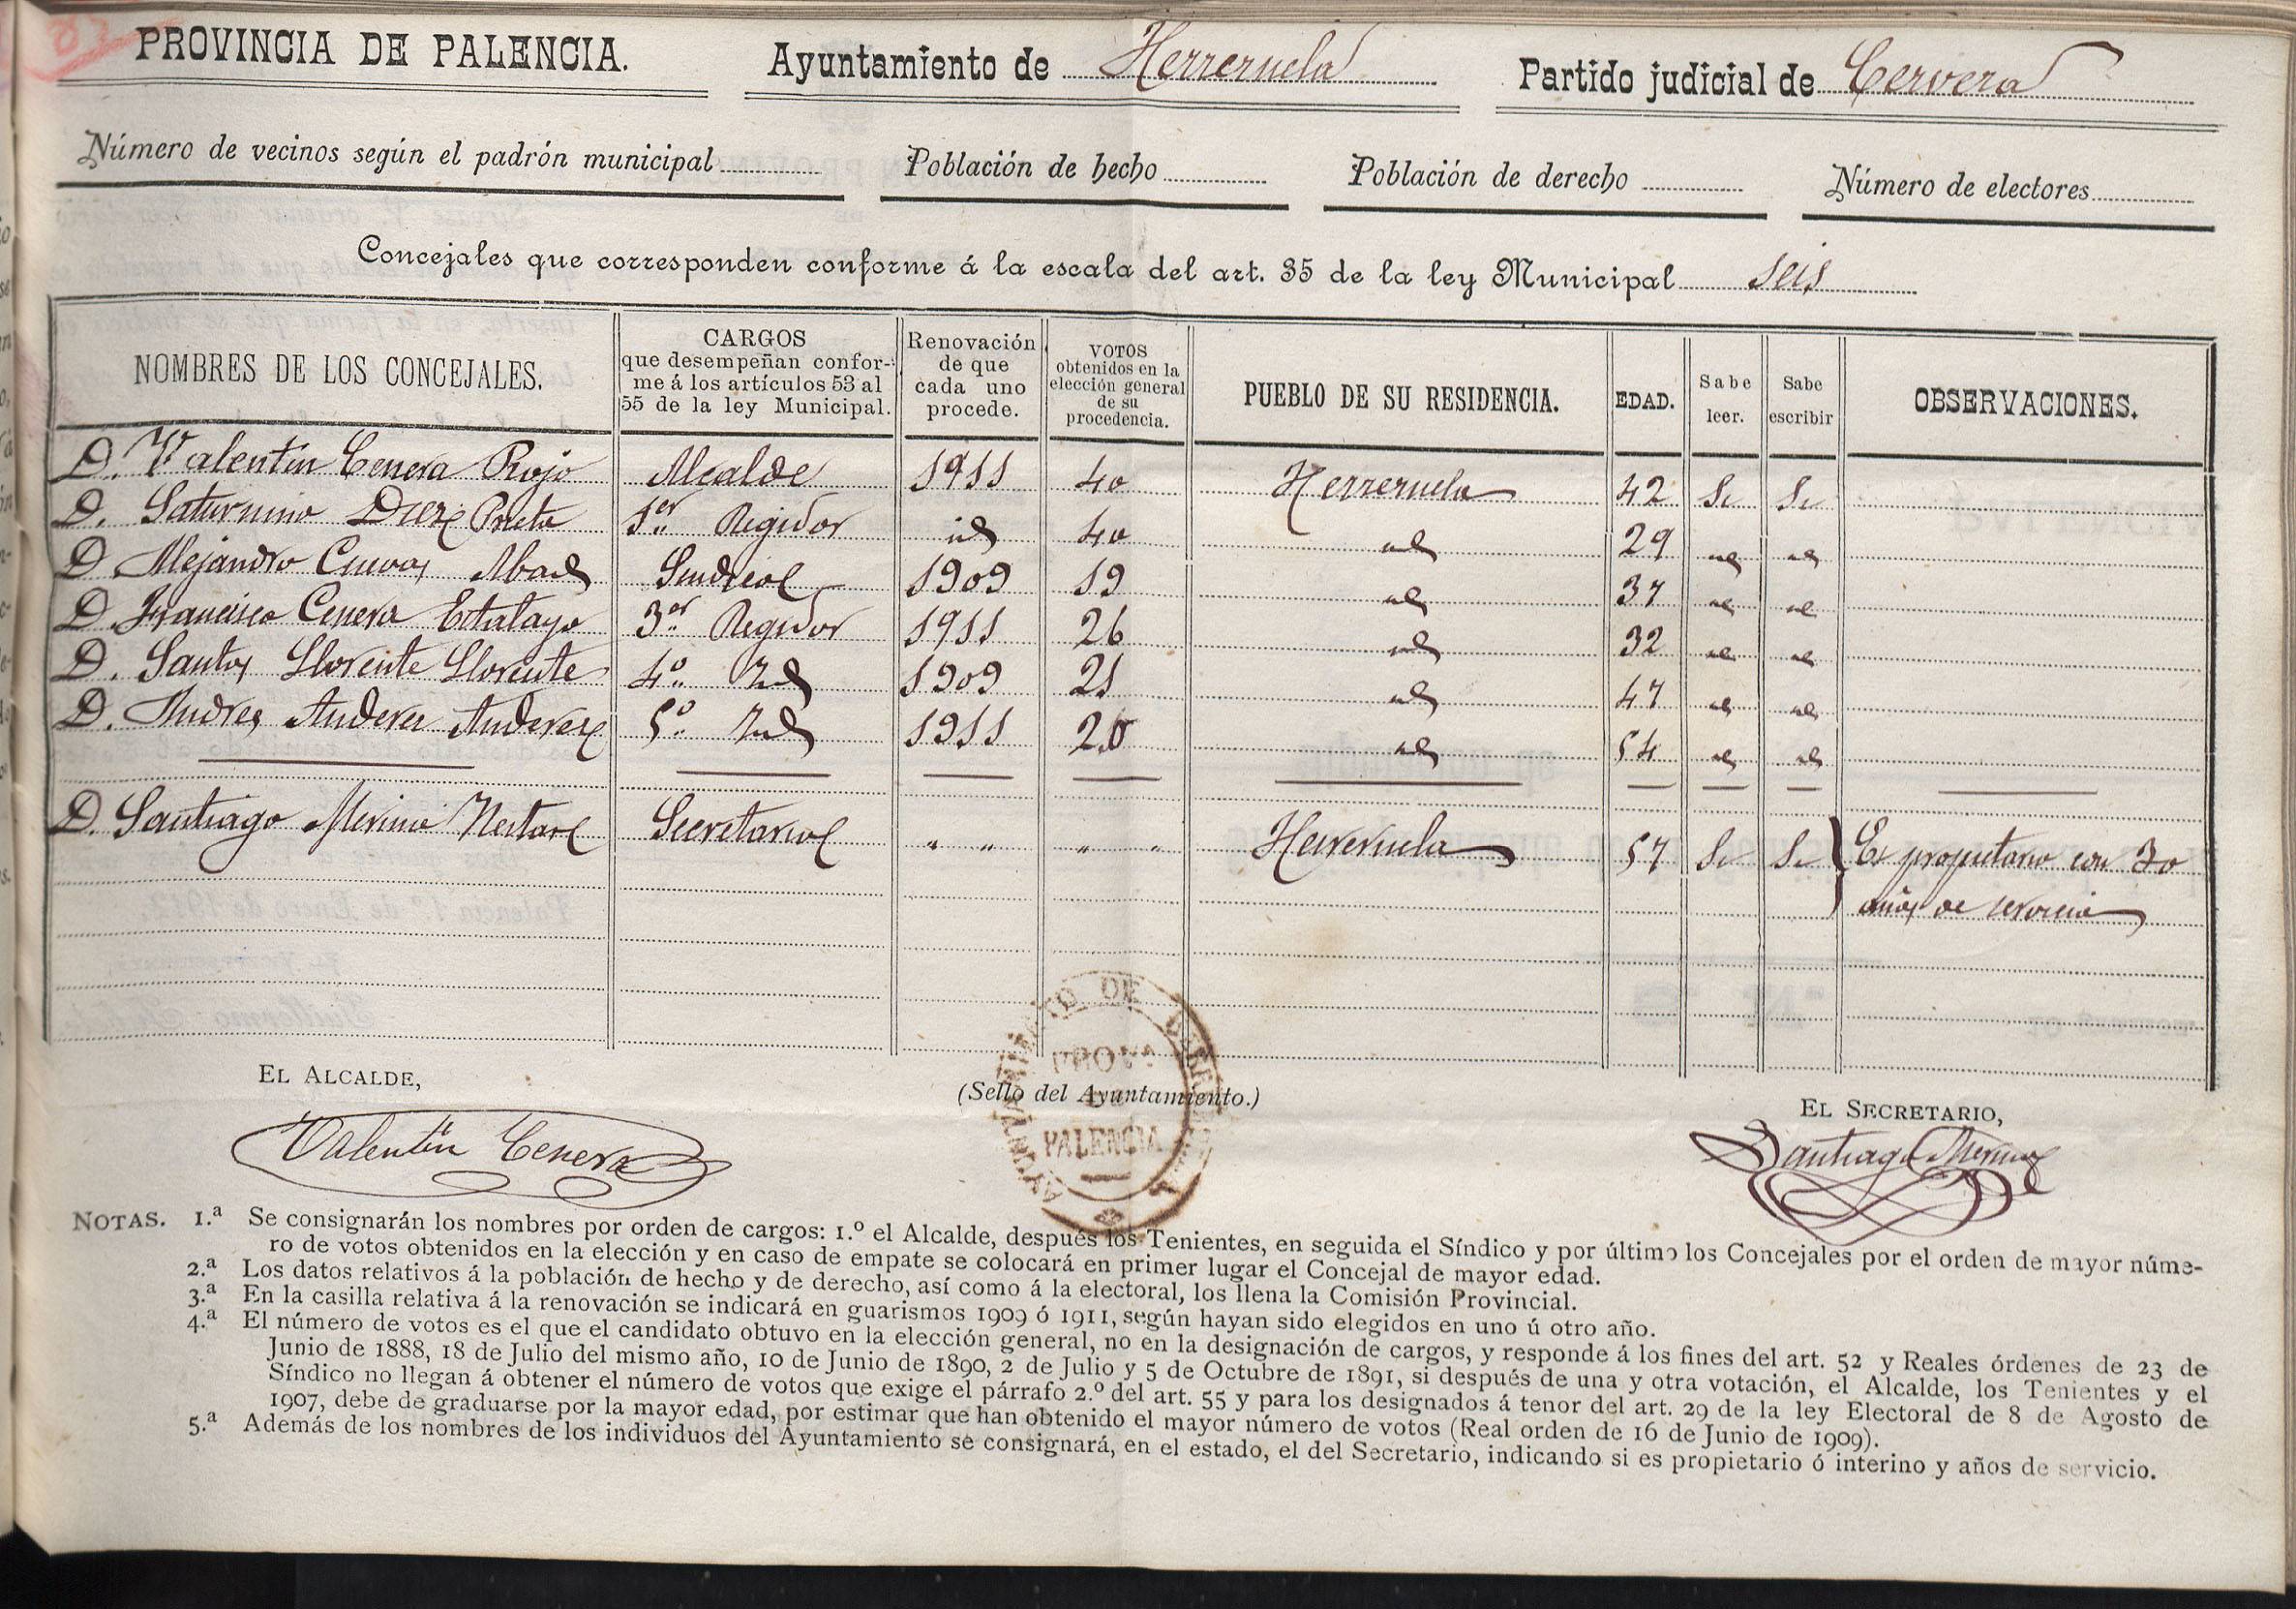 PROVINCIA DE PALENCIA. Ayuntamiento de Herreruela Partido judicial de Cervera
Número de vecinos según el padrón municipal Población de hecho Población de derecho Número de electores
Concejales que corresponden conforme á la escala del art. 35 de la ley Municipal seis
NOMBRES DE LOS CONCEJALES.
CARGOS
que desempeñan confor-
me á los artículos 53 al
55 de la ley Municipal.
Renovación
de que
cada uno
procede.
VOTOS
obtenidos en la
elección general
de su
procedencia.
PUEBLO DE SU RESIDENCIA.
EDAD.
Sabe
leer.
Sabe
escribir
OBSERVACIONES.
D. Valentin Cenera Rojo Alcalde 1911 40 Herreruela 42 Si Si
D. Saturnino Diez Prieto 1er Regidor id 40 id 29 id id
D. Alejandro Cuevas Abad Sindico 1909 19 id 37 id id
D. Francisco Cenera Estalayo 3er Regidor 1911 26 id 32 id id
D. Santos Llorente Llorente 4º Id 1909 21 id 47 id id
D. Andres Anderez Anderez 5º Id 1911 20 id 54 id id
D. Santiago Merino Secretario " " " " Herreruela 57 Si Si Es propietario con 30
años de servicio
EL ALCALDE,
Valentin Cenera
(Sello del Ayuntamiento.)
AYUNTAMIENTO DE HERRERUELA
PROVª
DE
PALENCIA
EL SECRETARIO,
Santiago Merino
NOTAS. 1.ª Se consignarán los nombres por orden de cargos: 1.º el Alcalde, después los Tenientes, en seguida el Síndico y por último los Concejales por el orden de mayor núme-
ro de votos obtenidos en la elección y en caso de empate se colocará en primer lugar el Concejal de mayor edad.
2.ª Los datos relativos á la población de hecho y de derecho, así como á la electoral, los llena la Comisión Provincial.
3.ª En la casilla relativa á la renovación se indicará en guarismos 1909 ó 1911, según hayan sido elegidos en uno ú otro año.
4.ª El número de votos es el que el candidato obtuvo en la elección general, no en la designación de cargos, y responde á los fines del art. 52 y Reales órdenes de 23 de
Junio de 1888, 18 de Julio del mismo año, 10 de Junio de 1890, 2 de Julio y 5 de Octubre de 1891, si después de una y otra votación, el Alcalde, los Tenientes y el
Síndico no llegan á obtener el número de votos que exige el párrafo 2.º del art. 55 y para los designados á tenor del art. 29 de la ley Electoral de 8 de Agosto de
1907, debe de graduarse por la mayor edad, por estimar que han obtenido el mayor número de votos (Real orden de 16 de Junio de 1909).
5.ª Además de los nombres de los individuos del Ayuntamiento se consignará, en el estado, el del Secretario, indicando si es propietario ó interino y años de servicio.